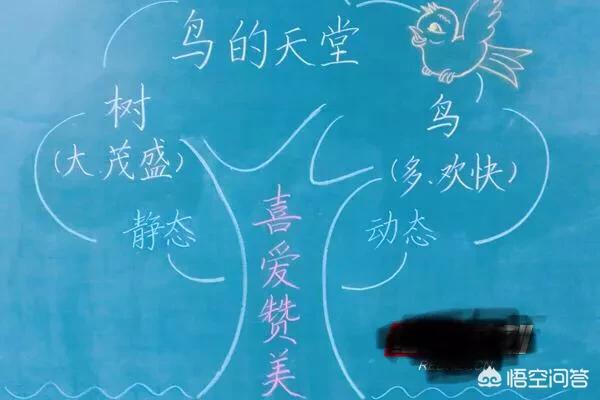 鸟的天堂
树
鸟
(大、茂盛)
(多、欢快)
静态
动态
喜爱赞美
悟空问答